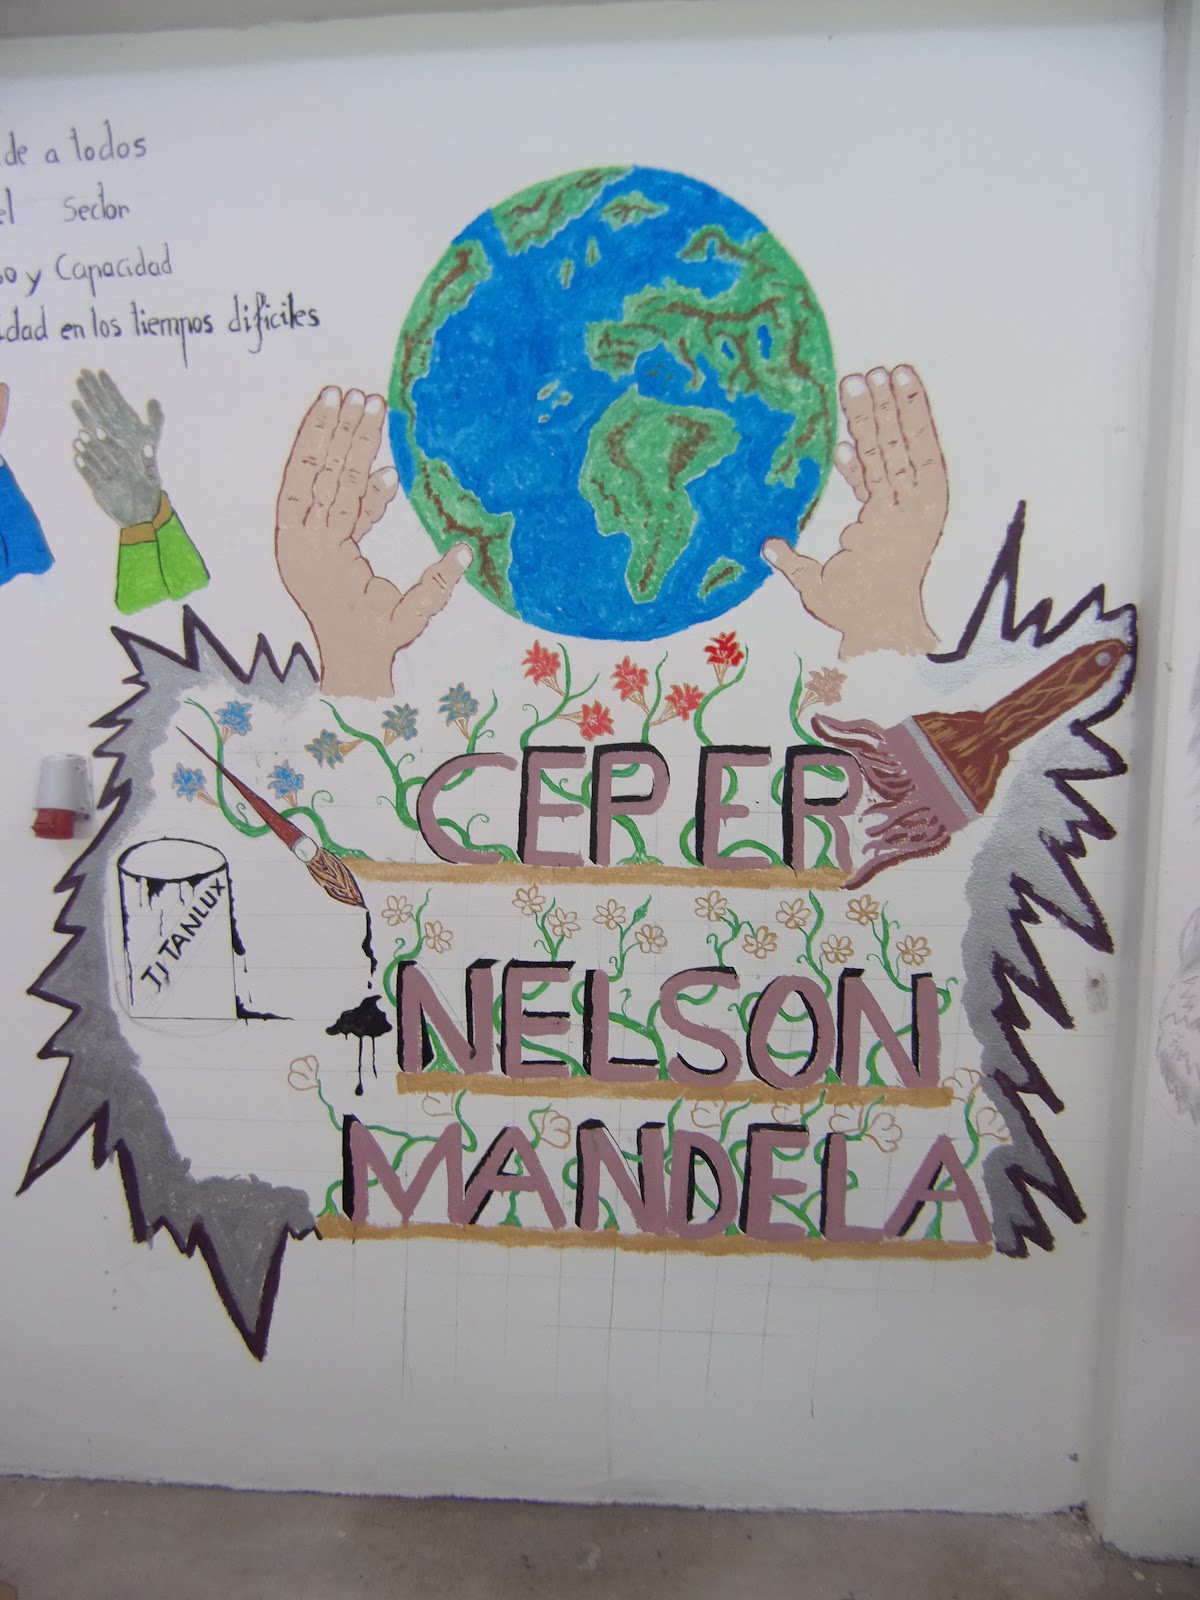 de a todos
el Sector
y Capacidad
en los tiempos dificiles
TJ TANLUX
CEPER
NELSON
MANDELA